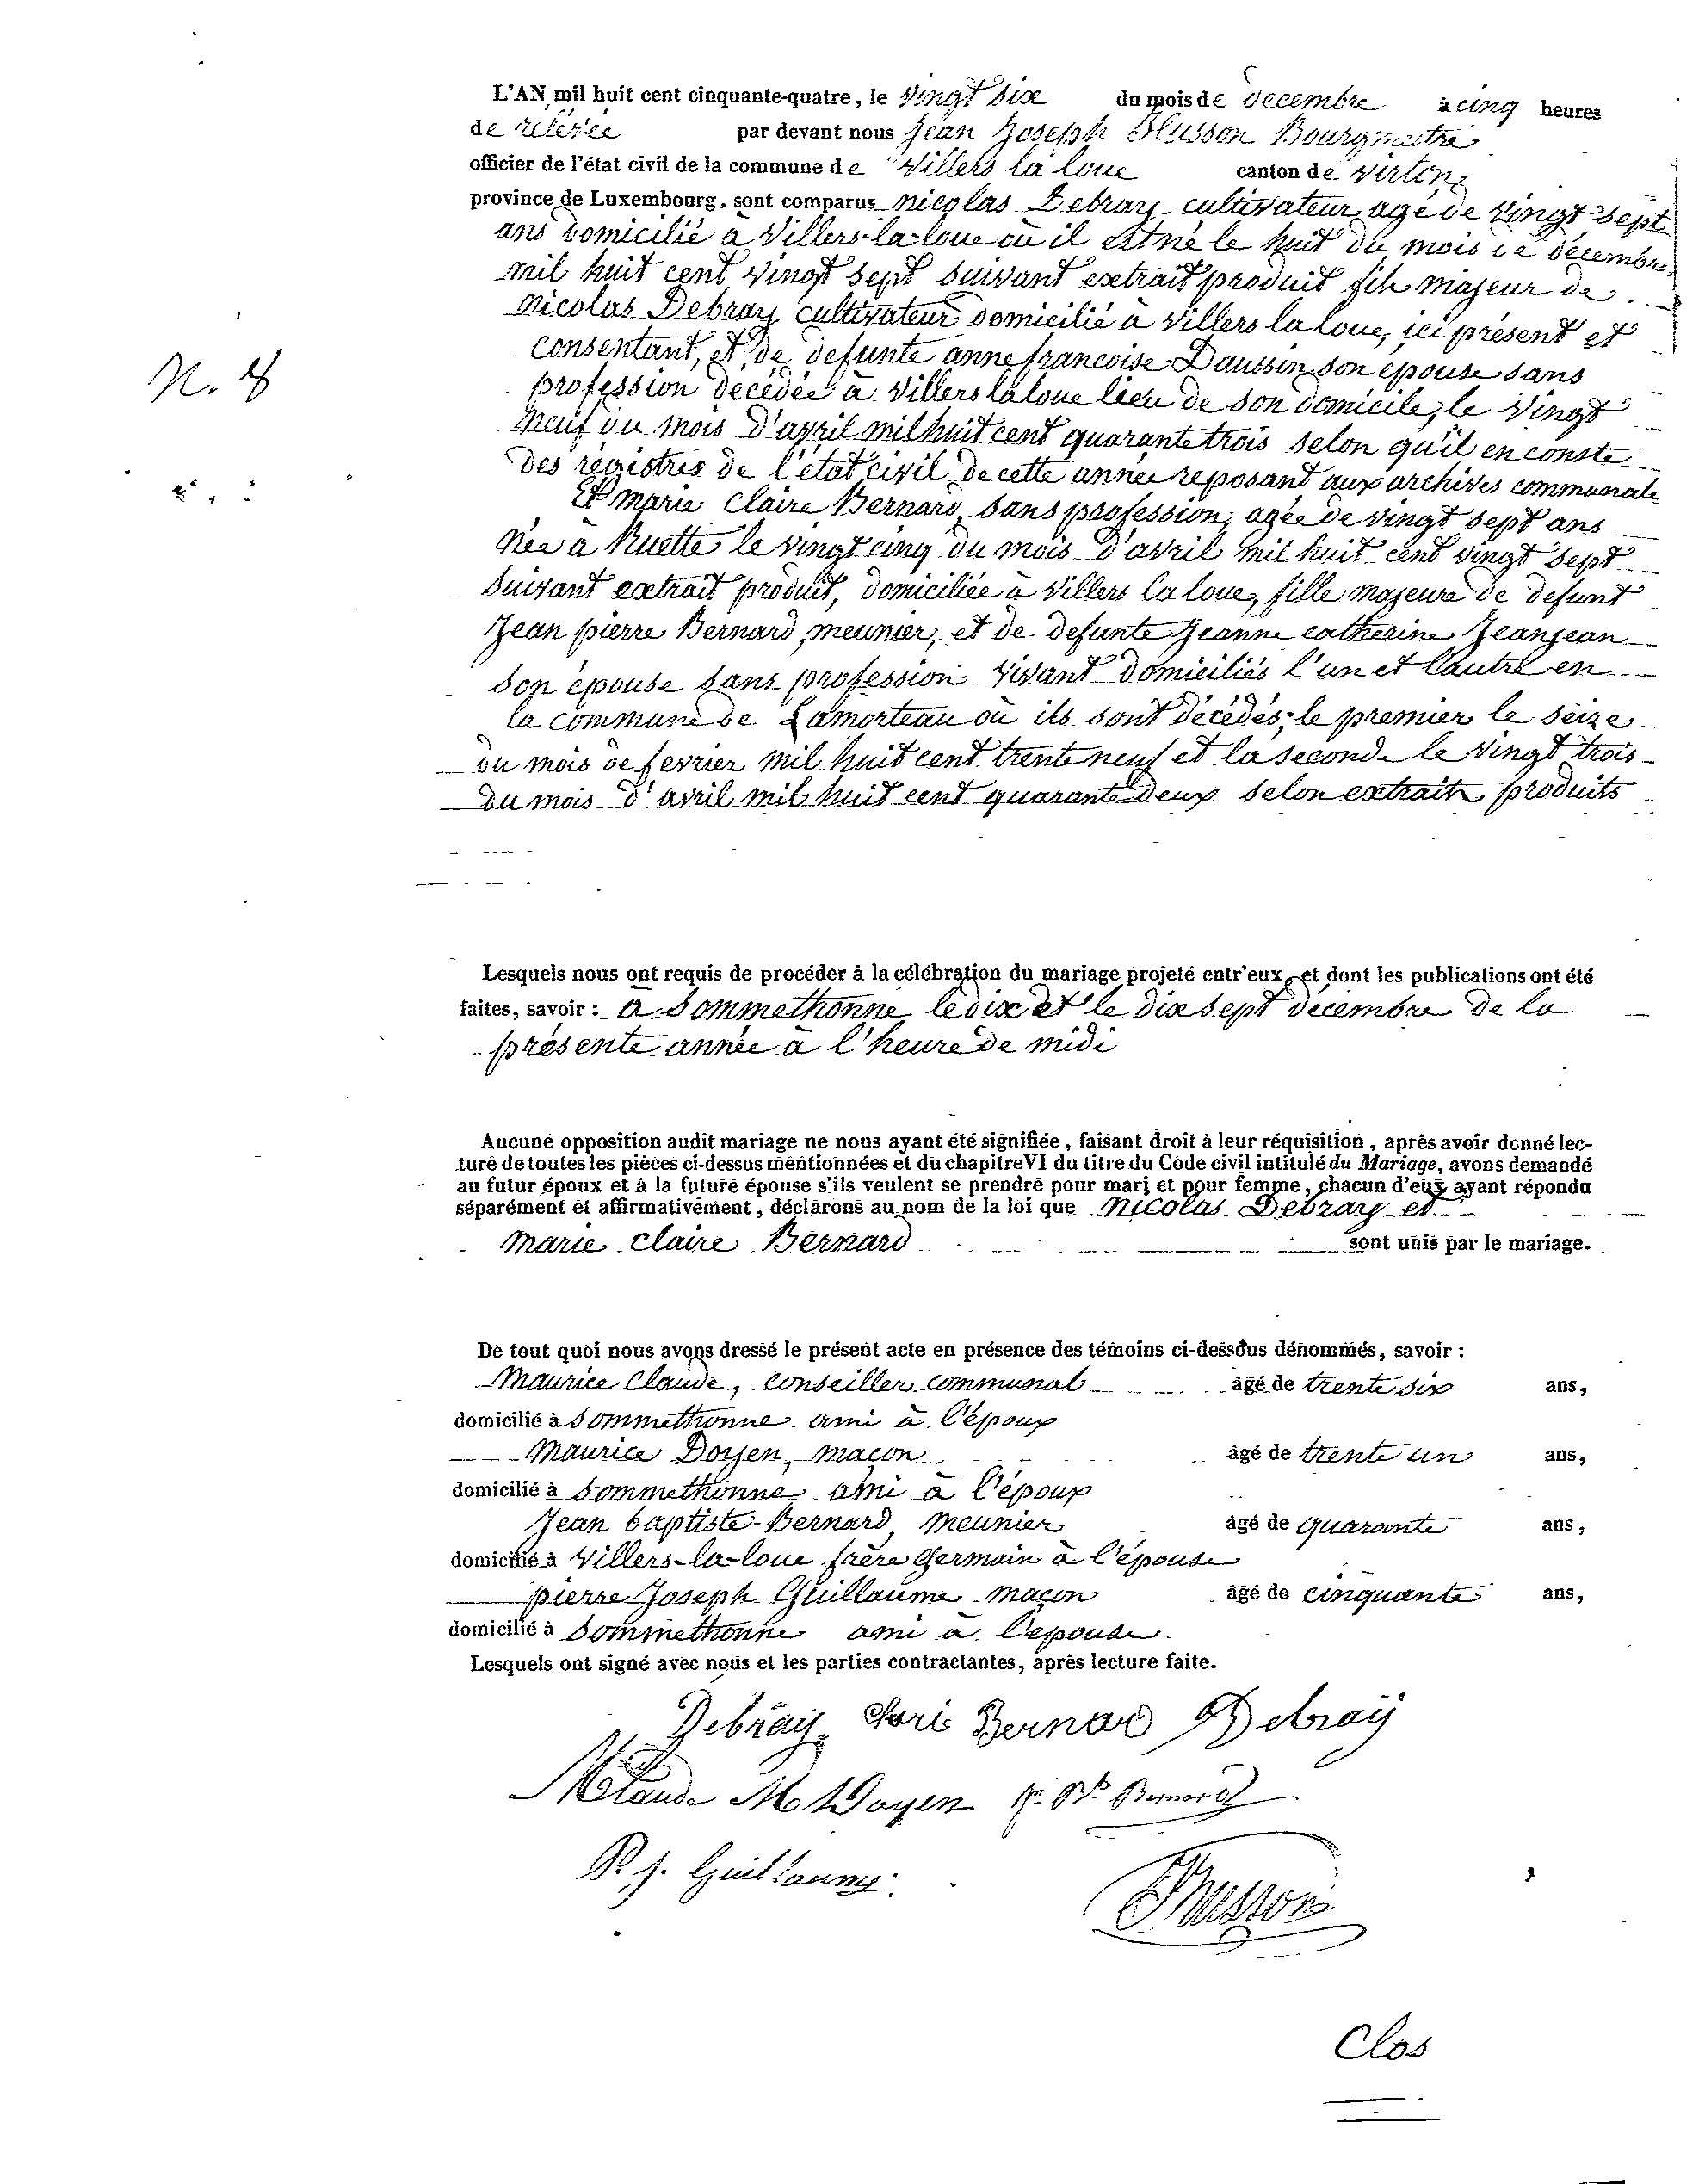 L'AN mil huit cent cinquante-quatre, le vingt six du mois de decembre à cinq heures
de relevée par devant nous Jean Joseph Husson Bourgmestre
officier de l'état civil de la commune de Villers la loue canton de virton
province de Luxembourg, sont comparus nicolas Debray cultivateur agé de vingt sept
ans domicilié à Villers-la-loue où il est né le huit du mois de décembre
mil huit cent vingt sept suivant extrait produit fils majeur de
nicolas Debray cultivateur domicilié à villers la loue, ici présent et
consentant, et de defunte anne francoise Daussin son épouse sans
profession decédée à Villers la loue lieu de son domicile, le vingt
N. 8
neuf du mois d'avril mil huit cent quarante trois selon qu'il en conste
des régistres de l'état civil de cette année reposant aux archives communale
Et marie Claire Bernard, sans profession, agée de vingt sept ans
née à Ruette le vingt cinq du mois d'avril mil huit cent vingt sept
suivant extrait produit, domiciliée à Villers la loue, fille majeure de defunt
Jean pierre Bernard, meunier, et de defunte Jeanne catherine Jeanjean
son épouse sans profession vivant domiciliés l'un et l'autre en
la commune de Lamorteau où ils sont décédés, le premier le seize
du mois de fevrier mil huit cent trente neuf et la seconde le vingt trois
du mois d'avril mil huit cent quarante deux selon extraits produits
Lesquels nous ont requis de procéder à la célébration du mariage projeté entr'eux, et dont les publications ont été
faites, savoir : à Sommethonne le dix et le dix sept decembre de la
présente année à l'heure de midi
Aucune opposition audit mariage ne nous ayant été signifiée, faisant droit à leur réquisition, après avoir donné lec-
ture de toutes les pièces ci-dessus mentionnées et du chapitre VI du titre du Code civil intitulé du Mariage, avons demandé
au futur époux et à la future épouse s'ils veulent se prendre pour mari et pour femme, chacun d'eux ayant répondu
séparément et affirmativement, déclarons au nom de la loi que Nicolas Debray et
marie claire Bernard sont unis par le mariage.
De tout quoi nous avons dressé le présent acte en présence des témoins ci-dessous dénommés, savoir :
Maurice Claude, conseiller communal âgé de trente six ans,
domicilié à Sommethonne ami à l'époux
Maurice Doyen, maçon âgé de trente un ans,
domicilié à Sommethonne ami à l'époux
Jean baptiste Bernard meunier âgé de quarante ans,
domicilié à Villers-la-loue frère germain à l'épouse
pierre Joseph Guillaume maçon âgé de cinquante ans,
domicilié à Sommethonne ami à l'epouse
Lesquels ont signé avec nous et les parties contractantes, après lecture faite.
Debray Bernard Debray
MClaude M Doyen Jn Bte Bernard
P. J. Guillaume
Husson
Clos